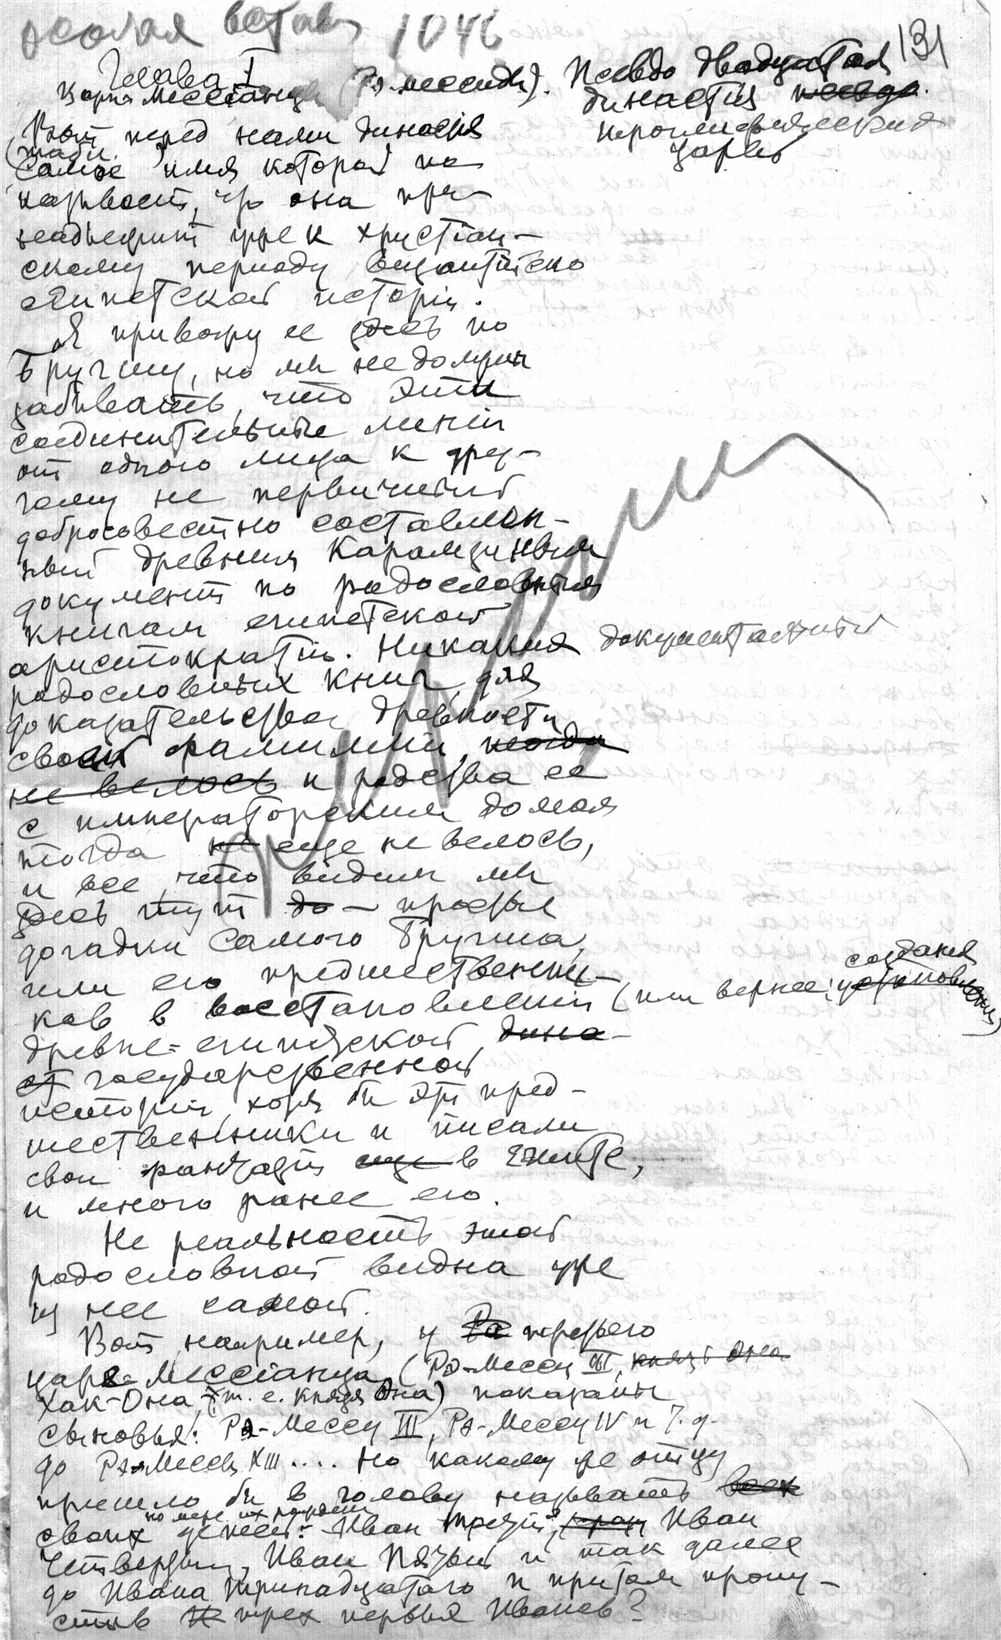 особая встав 1046
131
Глава I
Цари Мессианцы (Рэ-мессиды). Псевдо двадцатая
династия псевдо.
иероглифических
царей
Вот перед нами династия
(табл. )
самое имя которой по
казывает, что она при-
надлежит уже к христiан-
скому периоду Византiйско
египетской исторiи.
Я привожу ее здесь по
Бругшу, но мы не должны
забывать, что эти
соединительные линiи
от одного лица к дру-
гому не первичный
добросовестно составлен-
ный древним Карамзиным
документ по родословным
книгам египетской
аристократiи. Никаких документальных
родословных книг для
доказательства древности
своей фамилии, никогда
не велось и родства ее
с императорским домом
тогда не еще не велось,
и все что видим мы
здесь тут до — простые
догадки самого Бругша,
или его предшественни-
ков в восстановленiи (или вернее: создания
установления)
древне-египетской дина-
ст государственной
исторiи, хотя бы эти пред-
шественники и писали
свои фантазiи еще в Египте,
и много ранее его.
Не реальность этой
родословной видна уже
из нее самой.
Вот, например, у Рэ третьего
царя-Мессiанца (Рэ-Мессу III, князя Она
Хак-Она, т. е. князя Она) показаны
сыновья: Рэ-Мессу III, Рэ-Мессу IV и т. д.
до Рэ-Мессу XIII.... Но какому же отцу
пришло бы в голову называть всех
по мере их рождения
своих детей: Иван третий, Иван
Четвертый, Иван Пятый и так далее
до Ивана Тринадцатого и притом пропу-
стив И трех первых Иванов?